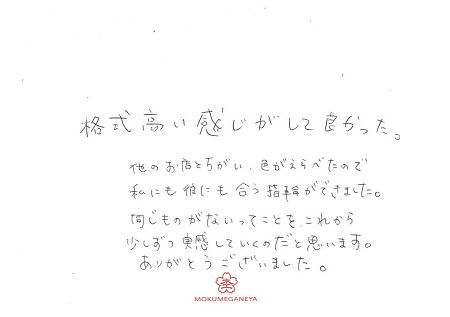 格式高い感じがして良かった。
他のお店とちがい、色がえらべたので
私にも彼にも合う指輪ができました。
同じものがないってことを、これから
少しずつ実感していくのだと思います。
ありがとうございました。
MOKUMEGANEYA